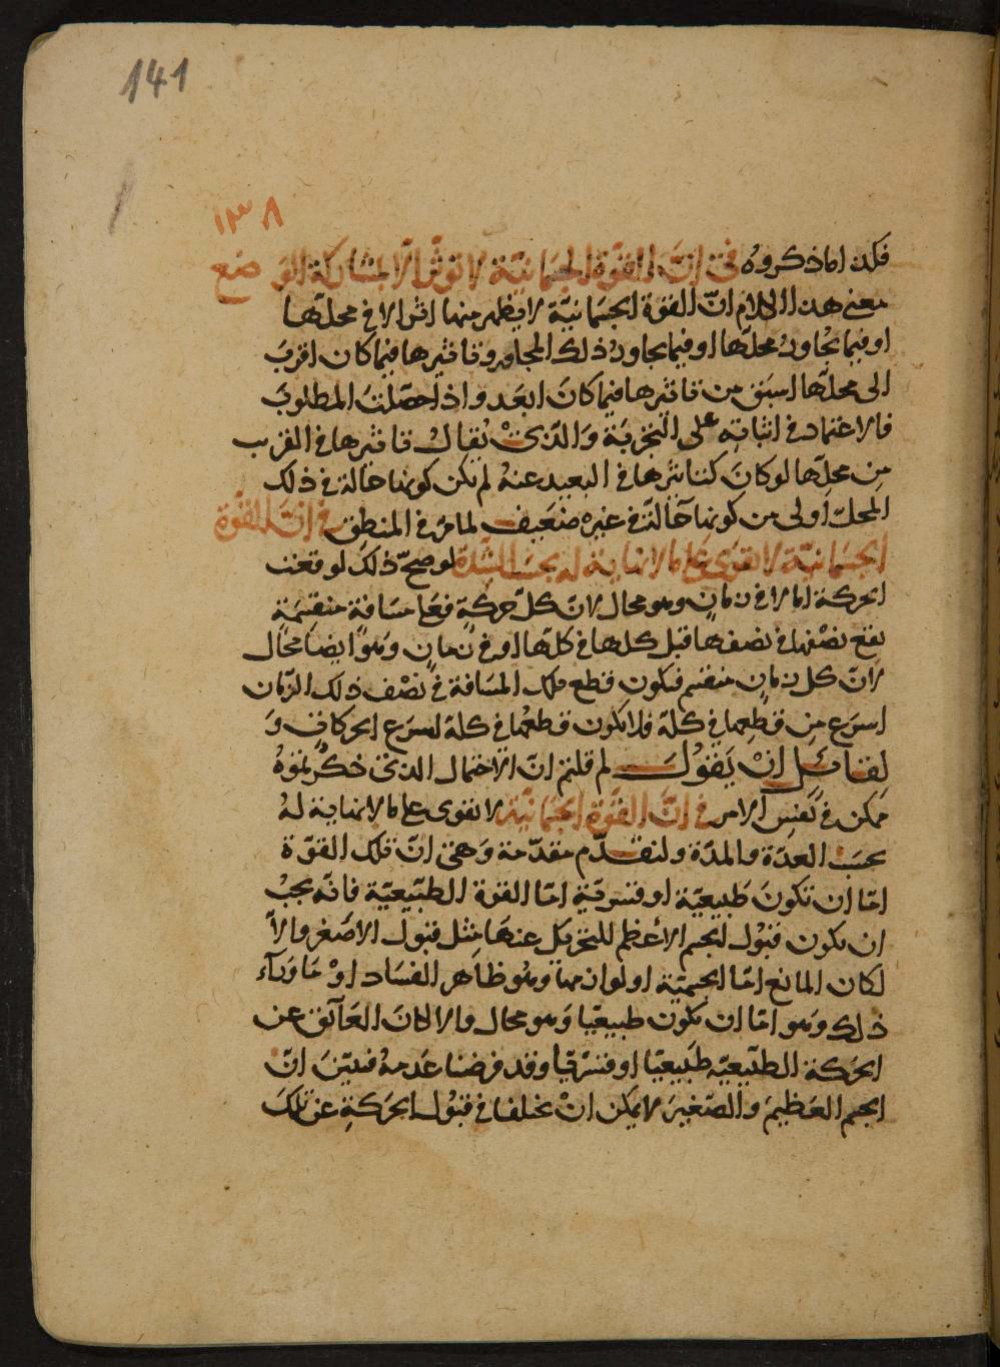 141
١٣٨
فكذا ما ذكروه في انّ القوّة الجسمانيّة لا توثّر الّا بمشاركة الوضع
معنى هذا الكلام انّ القوة الجسمَانيّة لا يظهر منها اثر الا في محلّها
او فيما يجُاورُ محلّها او فيما يجاورُ ذلك المجاور وتاثيرها فيما كان اقربَ
الى محلّها اسبَق من تاثيرها فيما كانَ ابعَد واذا حصّلتَ المطلوبَ
فالاعتماد في اثباته على التجربَة وَالذي يُقالُ تاثيرها في القريب
مِن محلّها لو كانَ كتاثيرها في البعيد عنهُ لم تكن كونها حَالة في ذلك
المحلّ اَولى من كونها حَآلّة في غيره ضعَيف لما مرّ في المنطِق في انّ القوّة
الجسمَانيّة لا تقوَى على ما لا نهاية له بحسَب الشّدة لو صحّ ذلكَ لوقعَت
الحركة اما لا في زمانٍ وهو محال لانّ كلّ حركةٍ فعَلى مسَافةٍ منقسِمَةٍ
يقع نصْفها في نصفها قبل كلها في كلّها او في زمَانٍ وَهوَ ايضا محَال
لانّ كل زمانٍ منقسم فيكون قطع تلك المسَافة في نصْف ذلك الزّمان
اسرَع مِن قطعِها في كلّه فلا يكون قطعُها في كلّه اسرَع الحركاتِ وَ
لِقائلٍ انْ يَقوُلَ لم قلتم انّ الاحتمال الذي ذكرُتموُهُ
ممكن في نَفسِ الامر في انّ القوّة الجسمانيّة لا تقوى على ما لا نهاية لهُ
بحسَب العدّة والمدّة ولنقدّم مقدّمة وَهى انّ تلك القوّة
امّا ان تكونَ طَبيعيّة او قسرِيّة امّا القوة الطبّيعيّة فانّه يجبُ
ان يكون قبُول الجسم الأعظم للتحريك عنهَا مِثل قبول الاصَغر والّا
لكان المانع امّا الجسميّة او لوازمها وهُو ظاهر الفسَاد اوْ مَا وَرآء
ذلك وَهو امّا ان يكون طبيعيّا وَهو محال والا لكانَ العَآئق عن
الحرَكة الطبّيعيّه طَبيعيّا او قسَريّا وقد فرضنا عَدمهُ فتبيّنَ انّ
الجسم العَظيمَ والصّغيرَ لا يمكن انْ يختلفا في قبُول الحرَكةِ عن تلكَ